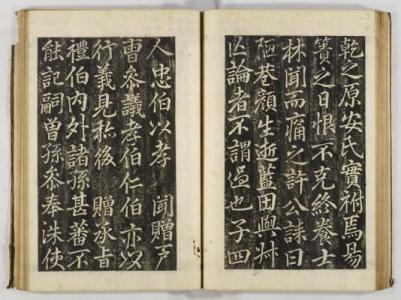 乾之原安氏實祔焉易
簀之日恨不克終養士
林聞而痛之許公誄曰
陋巷顏生逝藍田與叔
亾論者不謂過也子四
人忠伯以孝 聞贈户
曺叅議孝伯仁伯亦以
行義見称後 贈承旨
禮伯内外諸孫甚蕃不
能記嗣曾孫叅奉洙使